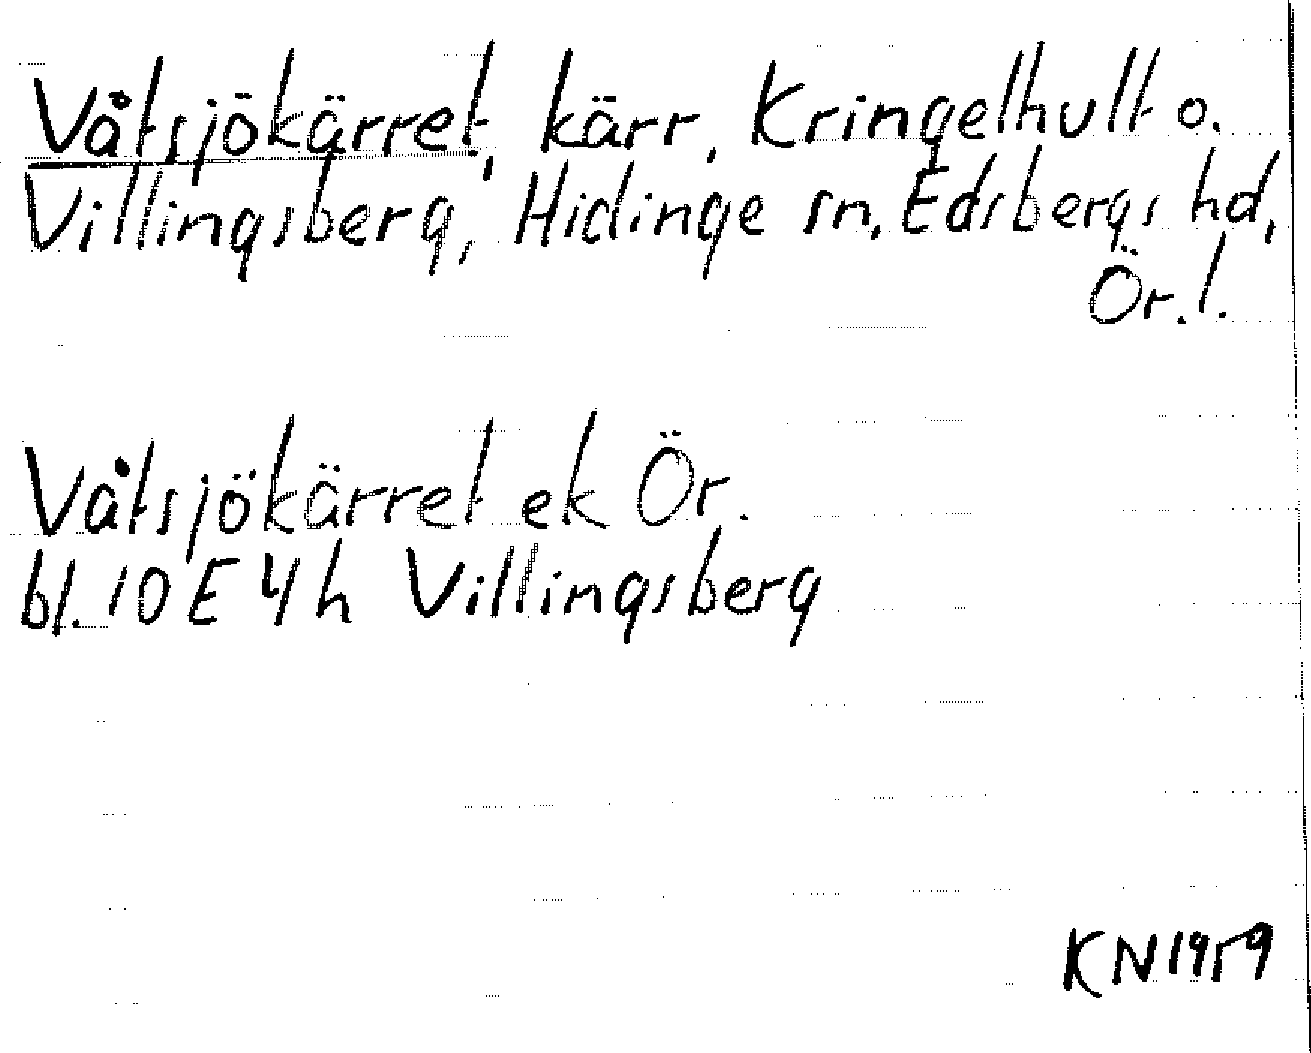 Våtsjökärret, kärr, Kringelhult o.
Villingsberg, Hidinge sn, Edsbergs hd,
Ör. l.
Våtsjökärret ek Ör.
bl. 10 E 4 h Villingsberg
KN 1959